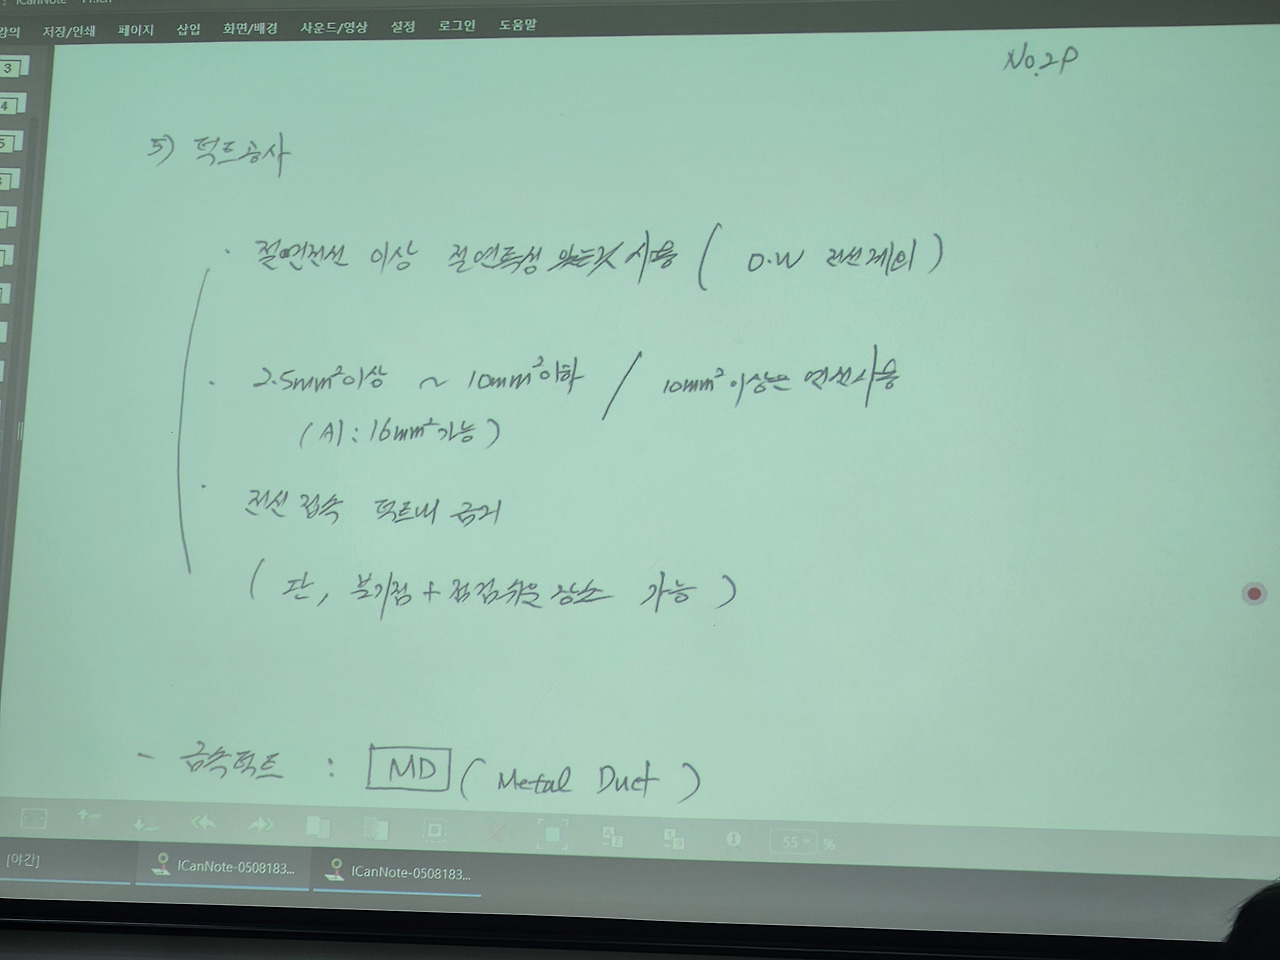 강의 저장/인쇄 페이지 삽입 화면/배경 사운드/영상 설정 로그인 도움말
3
4
5
No.2P
5) 덕트공사
· 절연전선 이상 절연특성 있는것 사용 ( O.W 전선제외 )
· 2.5mm² 이상 ~ 10mm² 이하 / 10mm² 이상은 연선사용
(Al : 16mm² 가능)
· 전선 접속 덕트내 금지
( 단, 분기점 + 점검쉬운 장소 가능 )
- 금속덕트 : MD ( Metal Duct )
55 %
[야간]
ICanNote-0508183...
ICanNote-0508183...